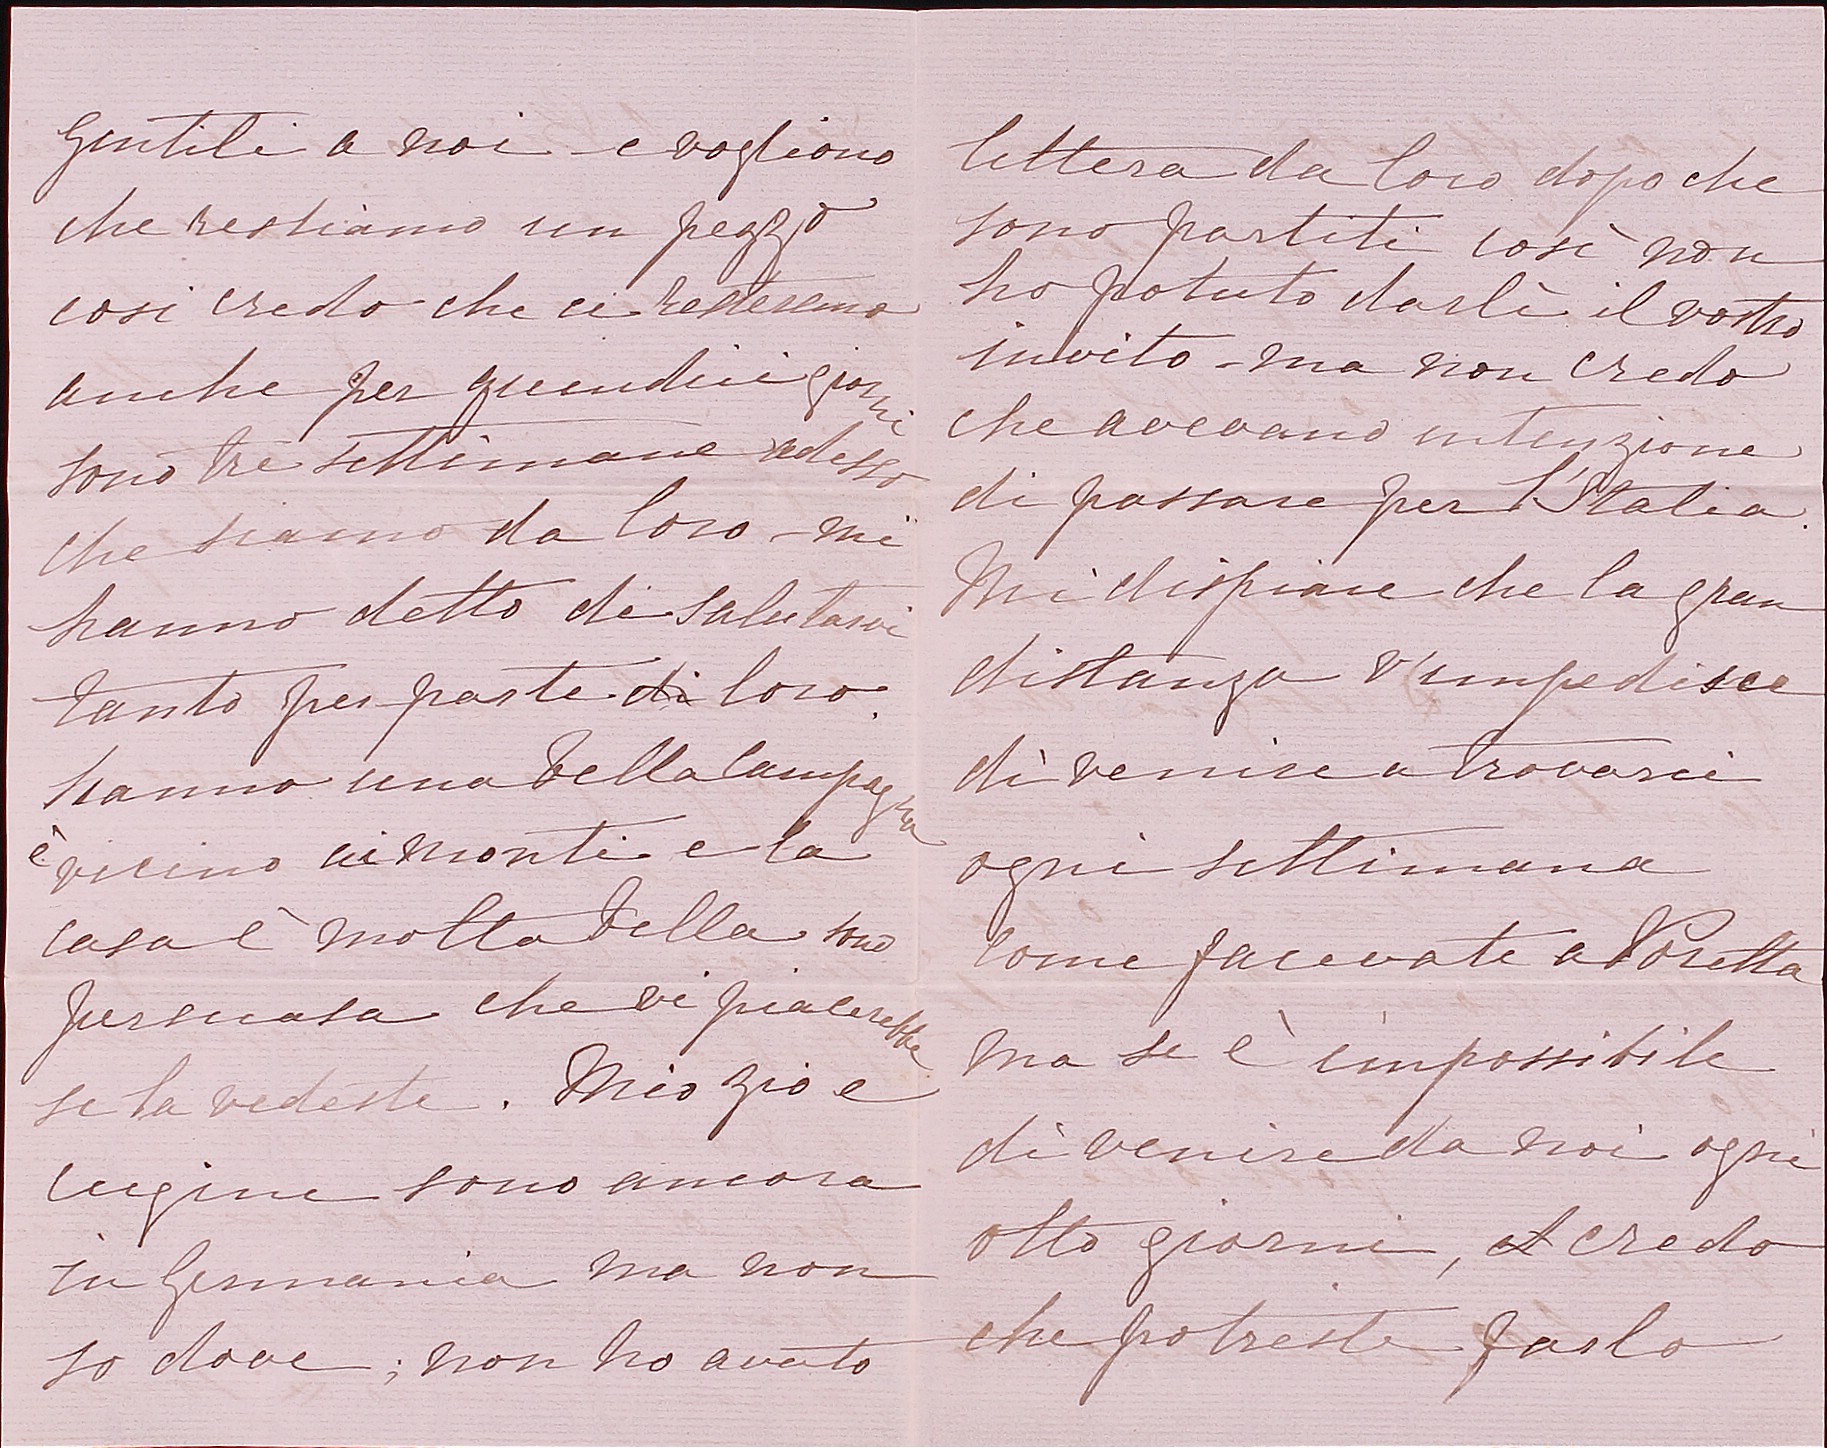 gentili a noi - e vogliono
che restiamo un pezzo
cosi credo che ci resteremo
anche per quindici giorni
sono tre settimane adesso
che siamo da loro - mi
hanno detto di salutarvi
tanto per parte di loro.
hanno una bella campagna
è vicino ai monti e la
casa è molto bella sono
persuasa che vi piacerebbe
se la vedeste. Mio zio e
cugine sono ancora
in Germania ma non
so dove; non ho avuto
lettera da loro dopo che
sono partiti così non
ho potuto darli il vostro
invito - ma non credo
che avevano intenzione
di passare per l'Italia.
Mi dispiace che la gran
distanza v'impedisce
di venire a trovarci
ogni settimana
come facevate a Poretta
ma se è impossibile
di venire da noi ogni
otto giorni, credo
che potreste farlo